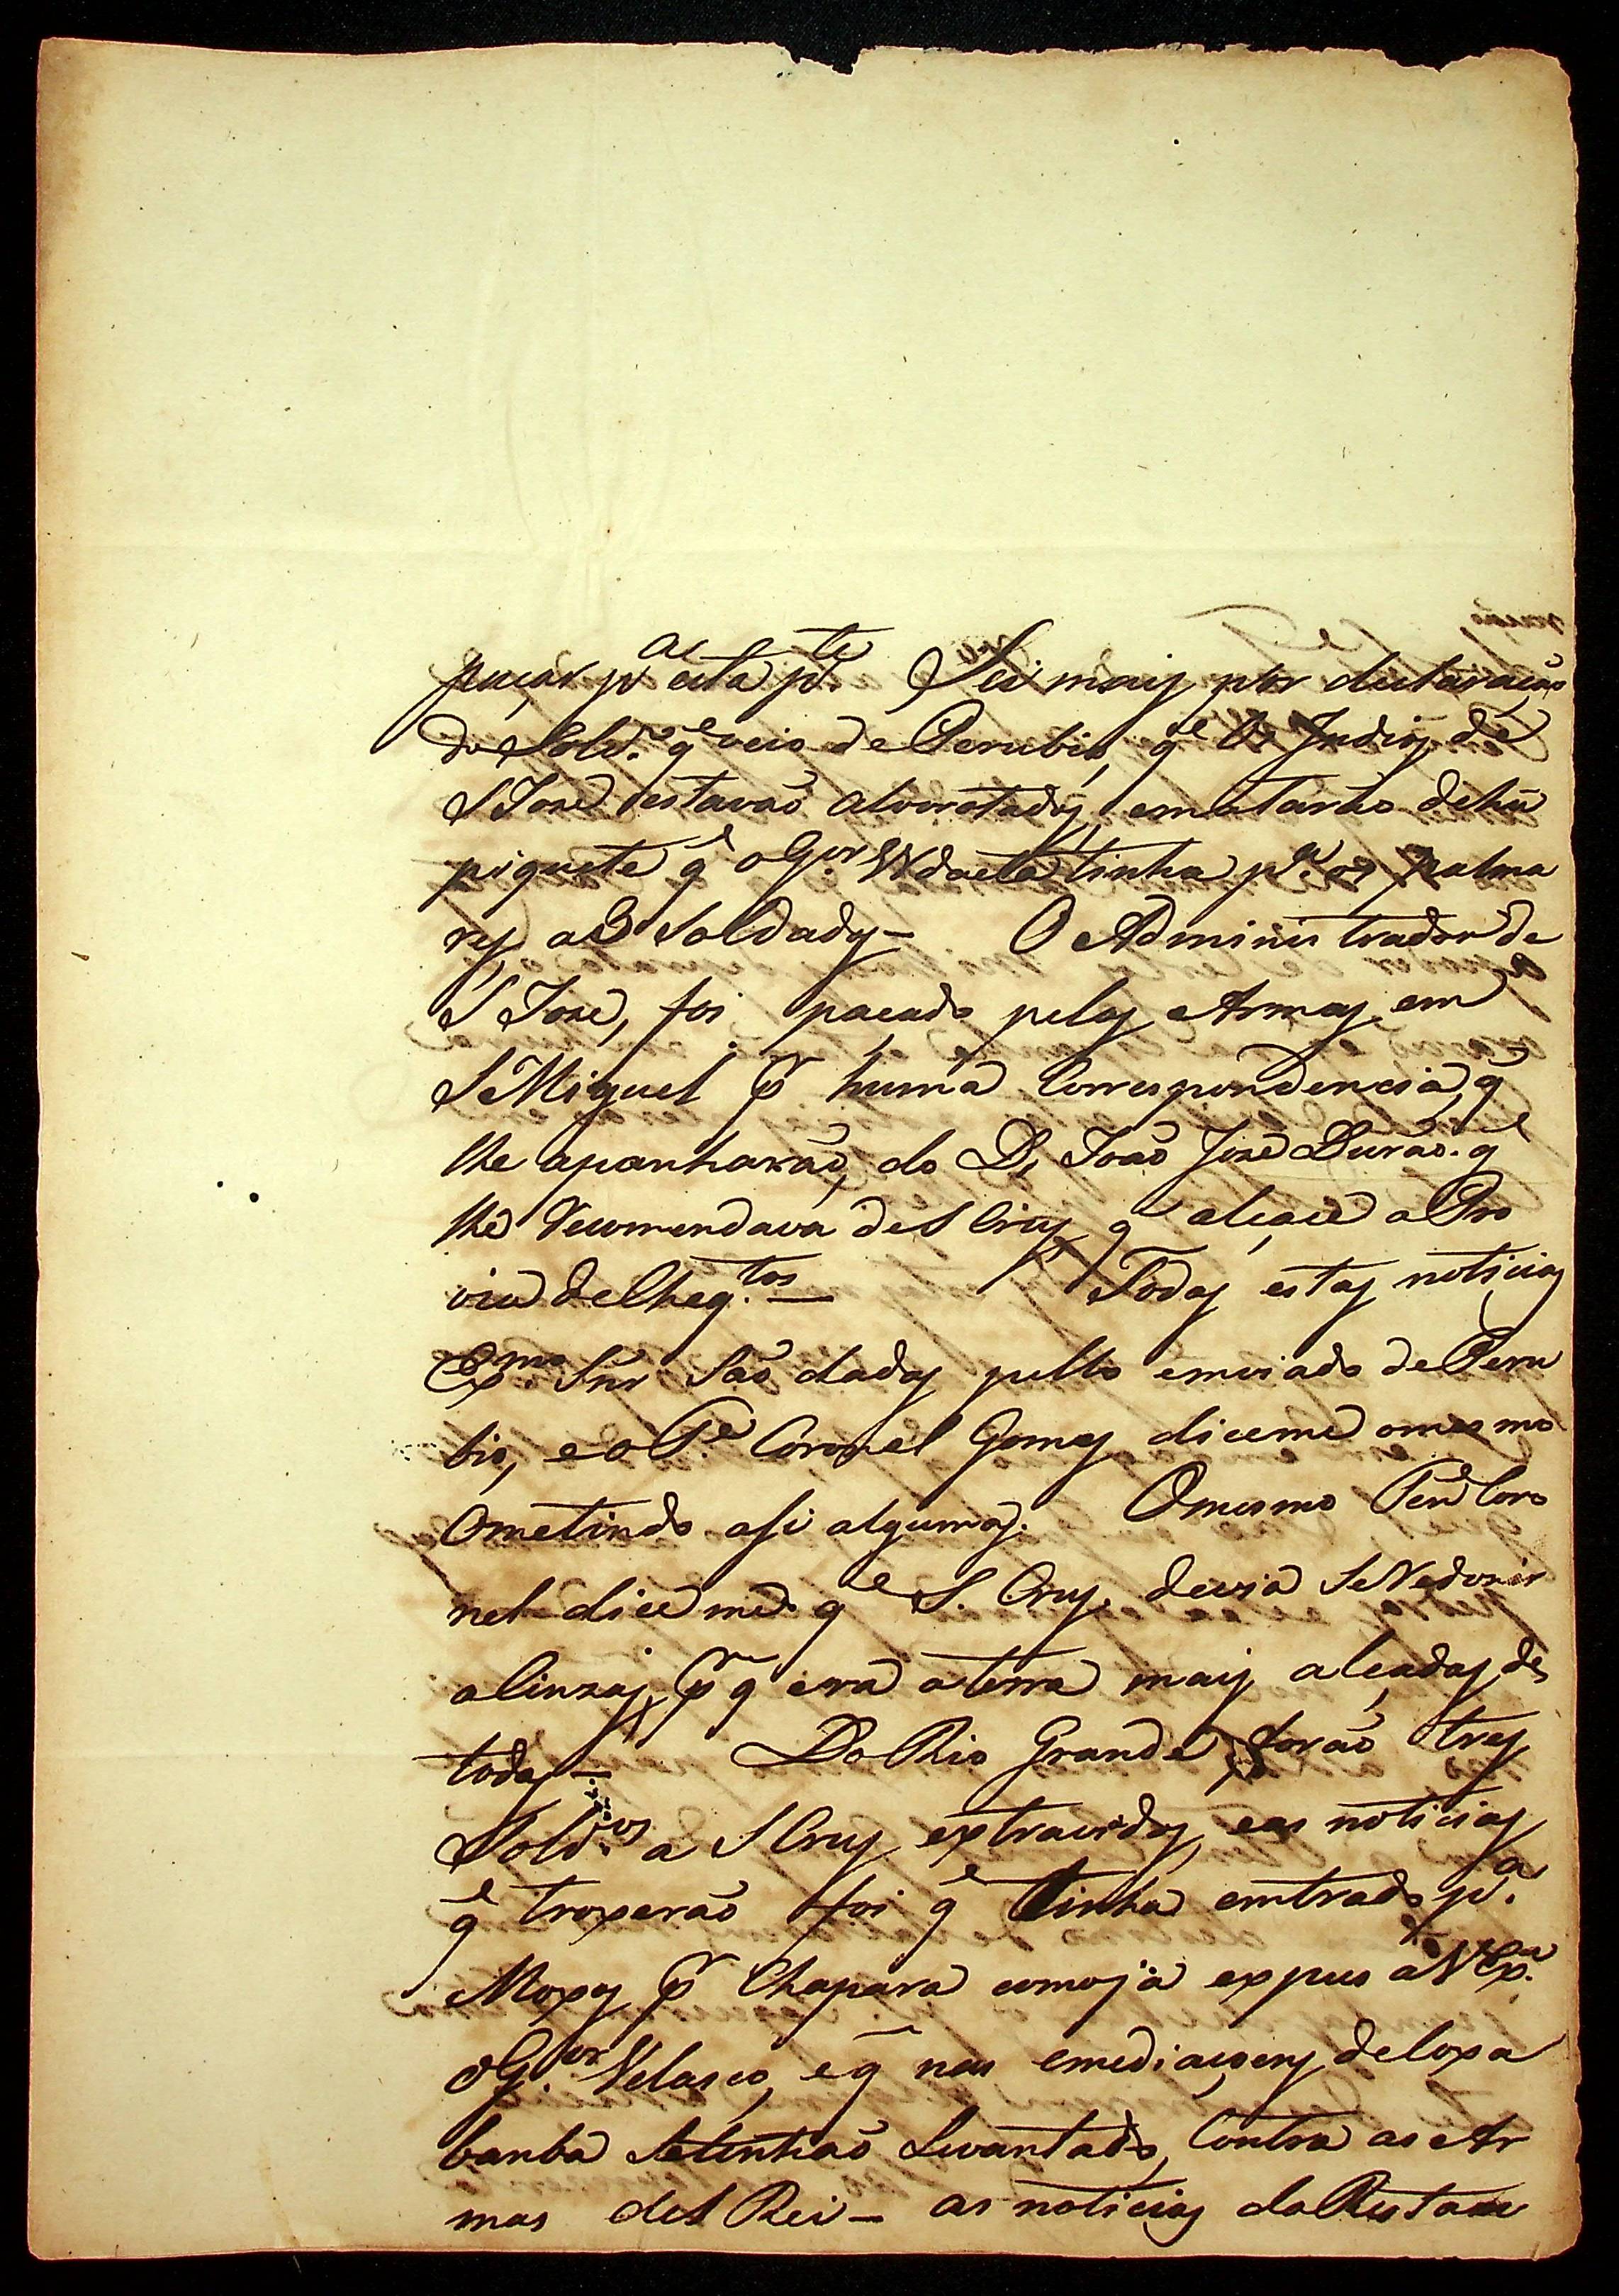 paçar p.ª esta p.te Sei mais por declaração
do Sold.º q̃ veio de Perubio, q̃ Os Indios de
S Jozé estavaõ alvorotados, ematarão dehũ
piquete q̃ oG.or Udaeta tinha p.ª os palma
res a 3 Soldados – O Administrador de
S Jozé, foi paçado pelas Armas em
S Miguel pr huma Correspondencia, q̃
lhe apanharaõ, do D. Joaõ Jozé Durão. q̃
lhe Recomendava deS Cruz q̃ alçacê aPro
vin delheg.tos — Todas estas noticias
Exmo Snr Saõ dadas pello enviado dePeru
bio, eoT.e Coronel Gomes diceme omesmo
Ometindo asi algumas. Omesmo Ten.e Coro
nel dice me. q̃ S. Cruz. devia SeRedozir
aSinzas, pr q̃ era aterra mais alçadas de
todas — Do Rio Grande, foraõ tres
Sold.os a S Cruz extravidos, eas noticias
q̃ troxeraõ foi q̃ tinha emtrado p.ª
Moxos pr Chapara comojá expus aV Ex.ª
oG.or Velasco, e q̃ nas emediaçoens deCoxa
banba Setinhaõ Levantado, Contra as Ar
mas del Rei – as noticias do Restam